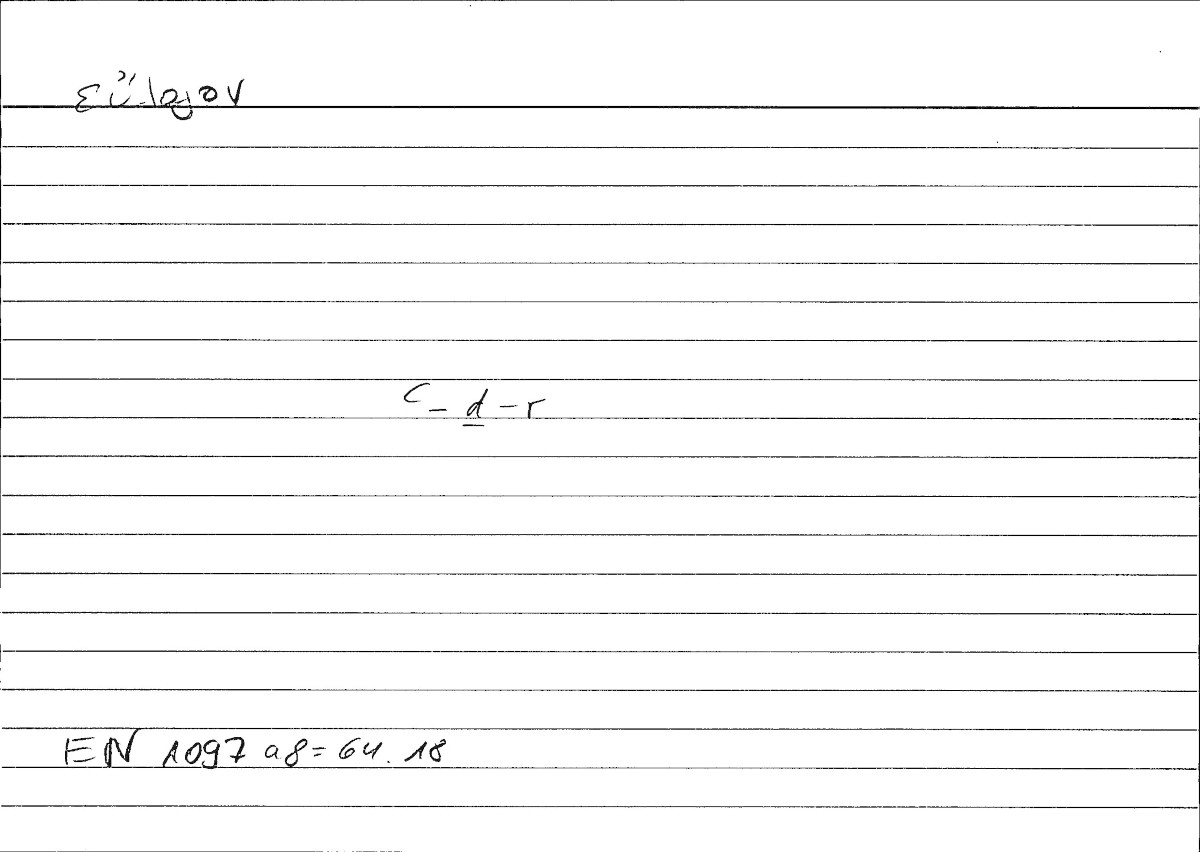 εὔλογον
ʿ – d̲ – r
EN 1097 a8 = 64.18